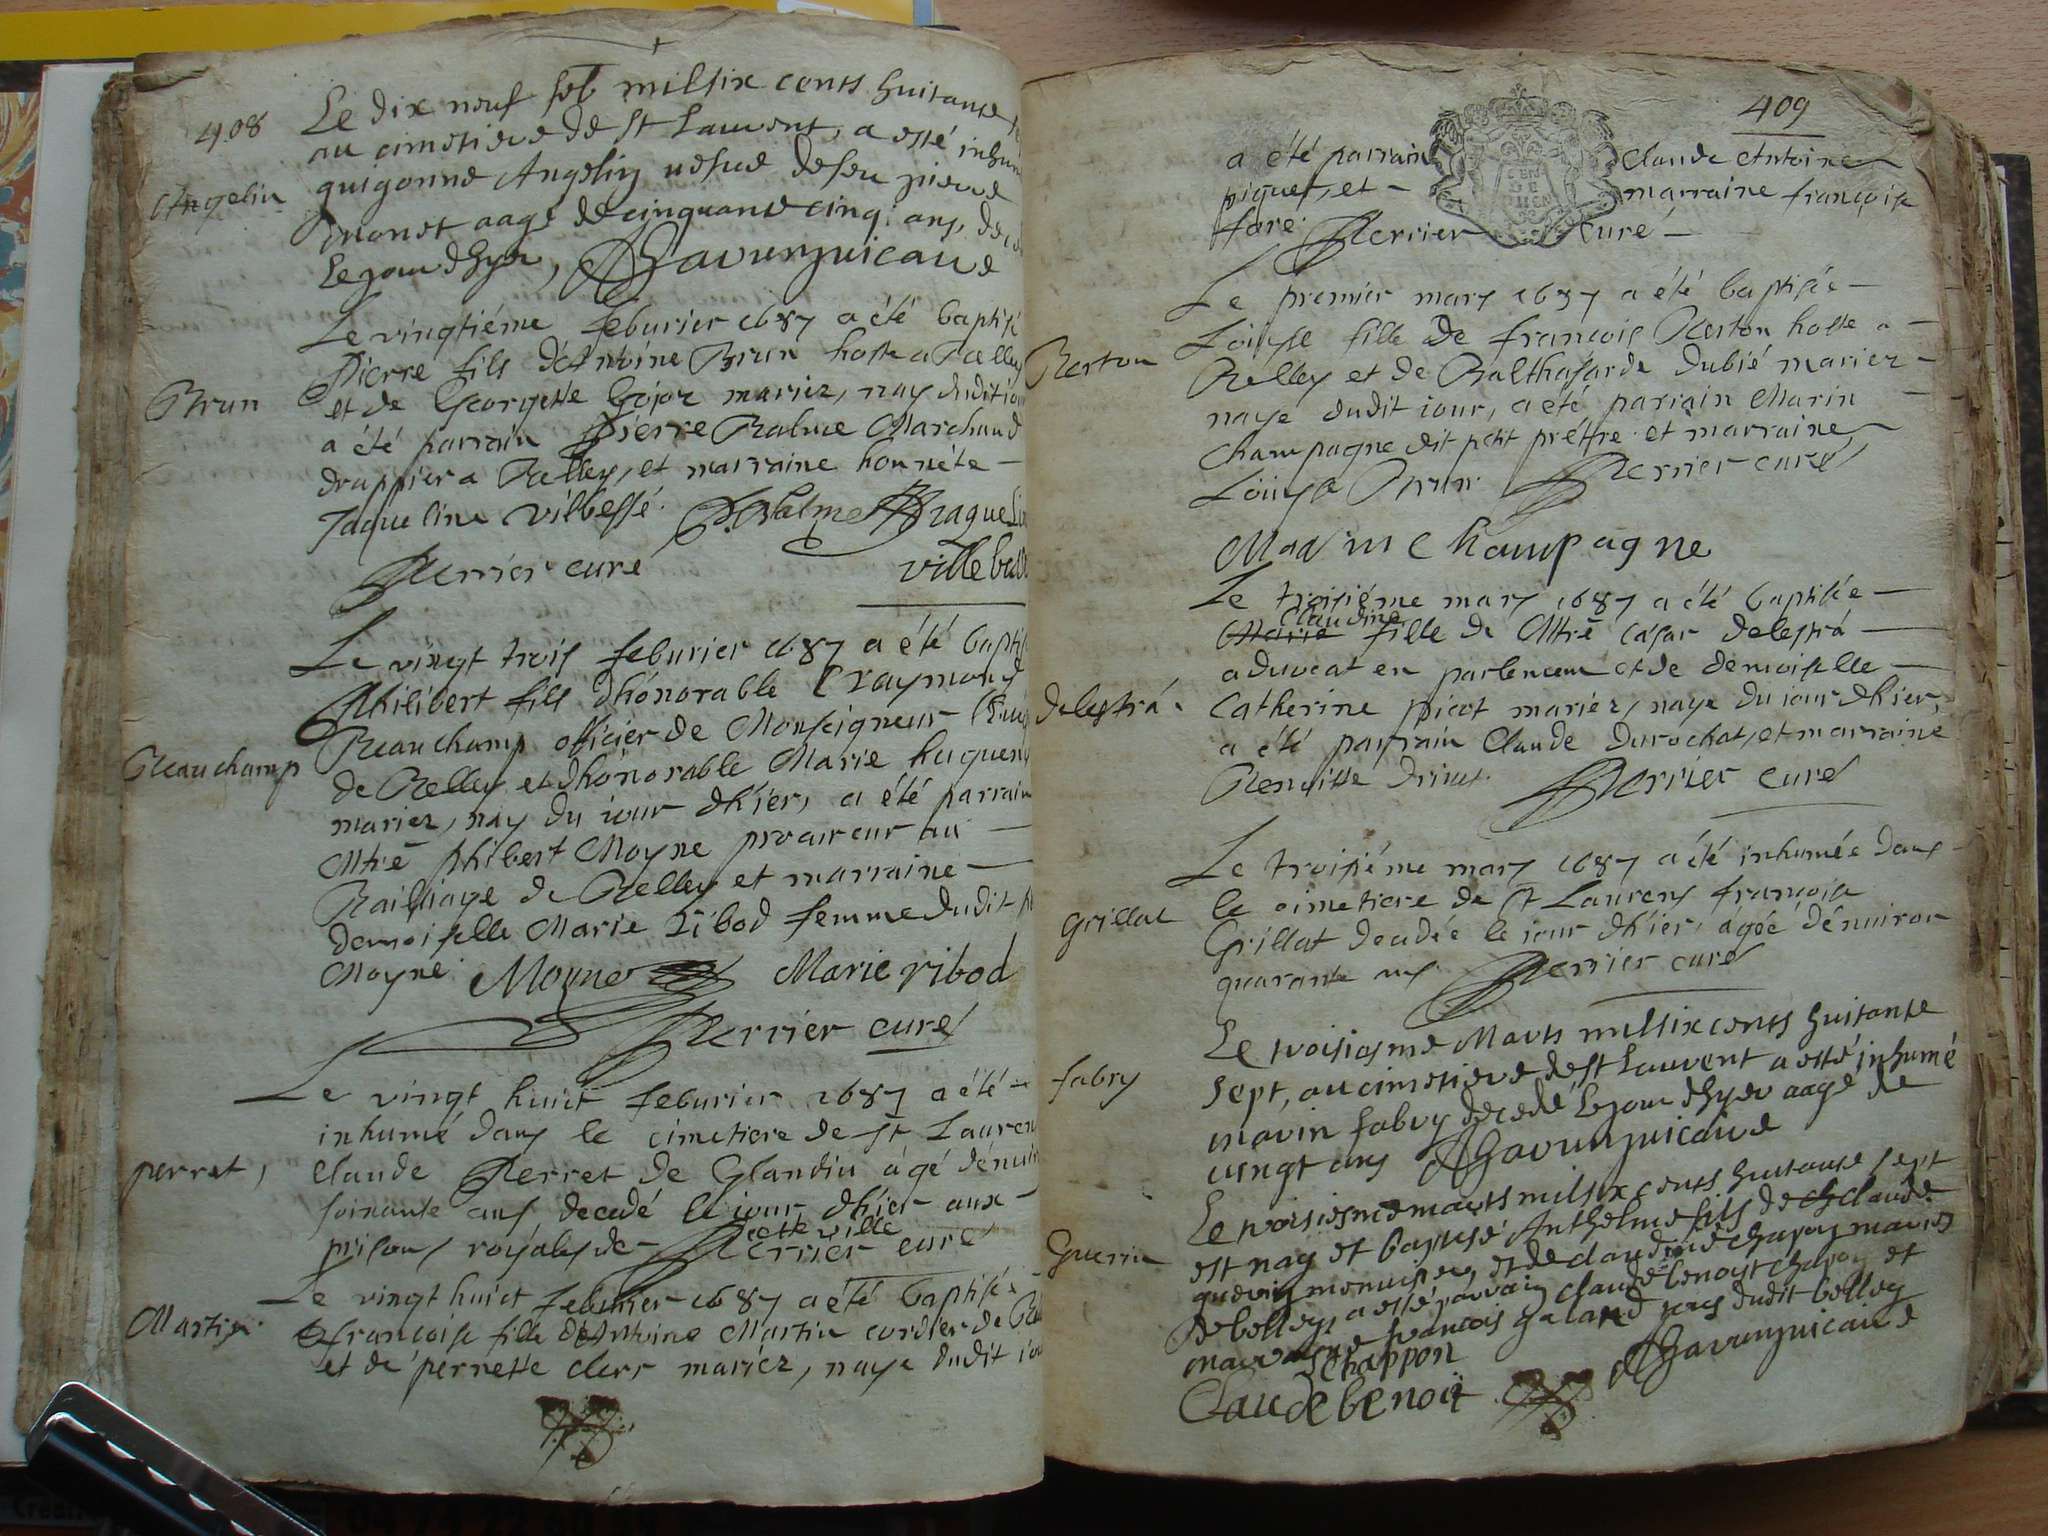 408
Le dix neuf feb milsix cents huitante
au cimetiere de St Laurent, a esté inhum
Angelin
guigonne Angelin uefue de feu pierre
monet aagé de cinquante cinq ans, de
le jour d'hyer,
Le vingtiéme feburier 1687 a été baptisé
Pierre fils d'Antoine Brun hoste a Belley
Brun
et de Georgette Gojoz mariez, nay dudit iou
a été parrain Pierre Balme Marchand
drappier a Belley, et marraine honnéte
Jaqueline Vilbessé. Balme Jaqueli
Perrier curé
ville
Le vingt trois feburier 1687 a été bapti
Philibert fils d'hónorable Craymond
Beauchamp officier de Monseigneur
Beauchamp
de Belley et d'hónorable Marie huguen
mariez, nay du iour d'hier, a été parrain
Mtre philibert Moyne procureur au
Bailliage de Belley et marraine
demoiselle Marie Ribod femme dudit
Moyne. Moyne Marie ribod
Perrier curé
Le vingt huict feburier 1687 a été
inhumé dans le cimetiere de St Lauren
perret,
Claude Perret de Glandiu ágé dénui
soixante ans decedé le iour d'hier aux
prisons royales de cette ville
Perrier curé
Le vingt huict feburier 1687 a été baptisée
Martin.
francoise fille d'Antoine Martin cordier de
et de pernette clerc mariez, naye dudit iou
409
a été parrain Claude Antoine
piquet, et marraine françoise
fare. Perrier curé
Le premier mars 1687 a été baptisée
Loüyse fille de françois Berton hoste a
Berton
Belley et de Balthasarde Dubié mariez
naye dudit iour, a été parrain Marin
Champagne dit petit prestre et marraine
Loüyse Brun. Perrier curé
Marin Champagne
Le troisiéme mars 1687 a été baptisée
Claudine
Marie fille de Mtre Cæsar delestrá
aduocat en parlement et de demoiselle
delestrá.
Catherine picot mariez, naye du iour d'hier,
a été parrain Claude Durochat, et marraine
Benoitte Perrier curé
Le troisiéme mars 1687 a été inhumée dans
le cimetiere de St Laurens françoise
Grillat
Grillat decedée le iour d'hier, ágée d'énuiron
quarante ans. Perrier curé
Le troisiesme Mars milsixcents huitante
Fabry
sept, au cimetiere de St Laurent a esté inhumé
marin fabry decedé le jour d'hyer aagé de
uingt ans
Le troisiesme mars milsix cents huitante sept
est nay et baptisé Anthelme fils de claude
Guerin
guerin menuisier, et de claudine chapon mariés
de belley, a esté parrain claude benoist chapon et
marraine francois galand tous dudit belley
chappon
Claude benoit